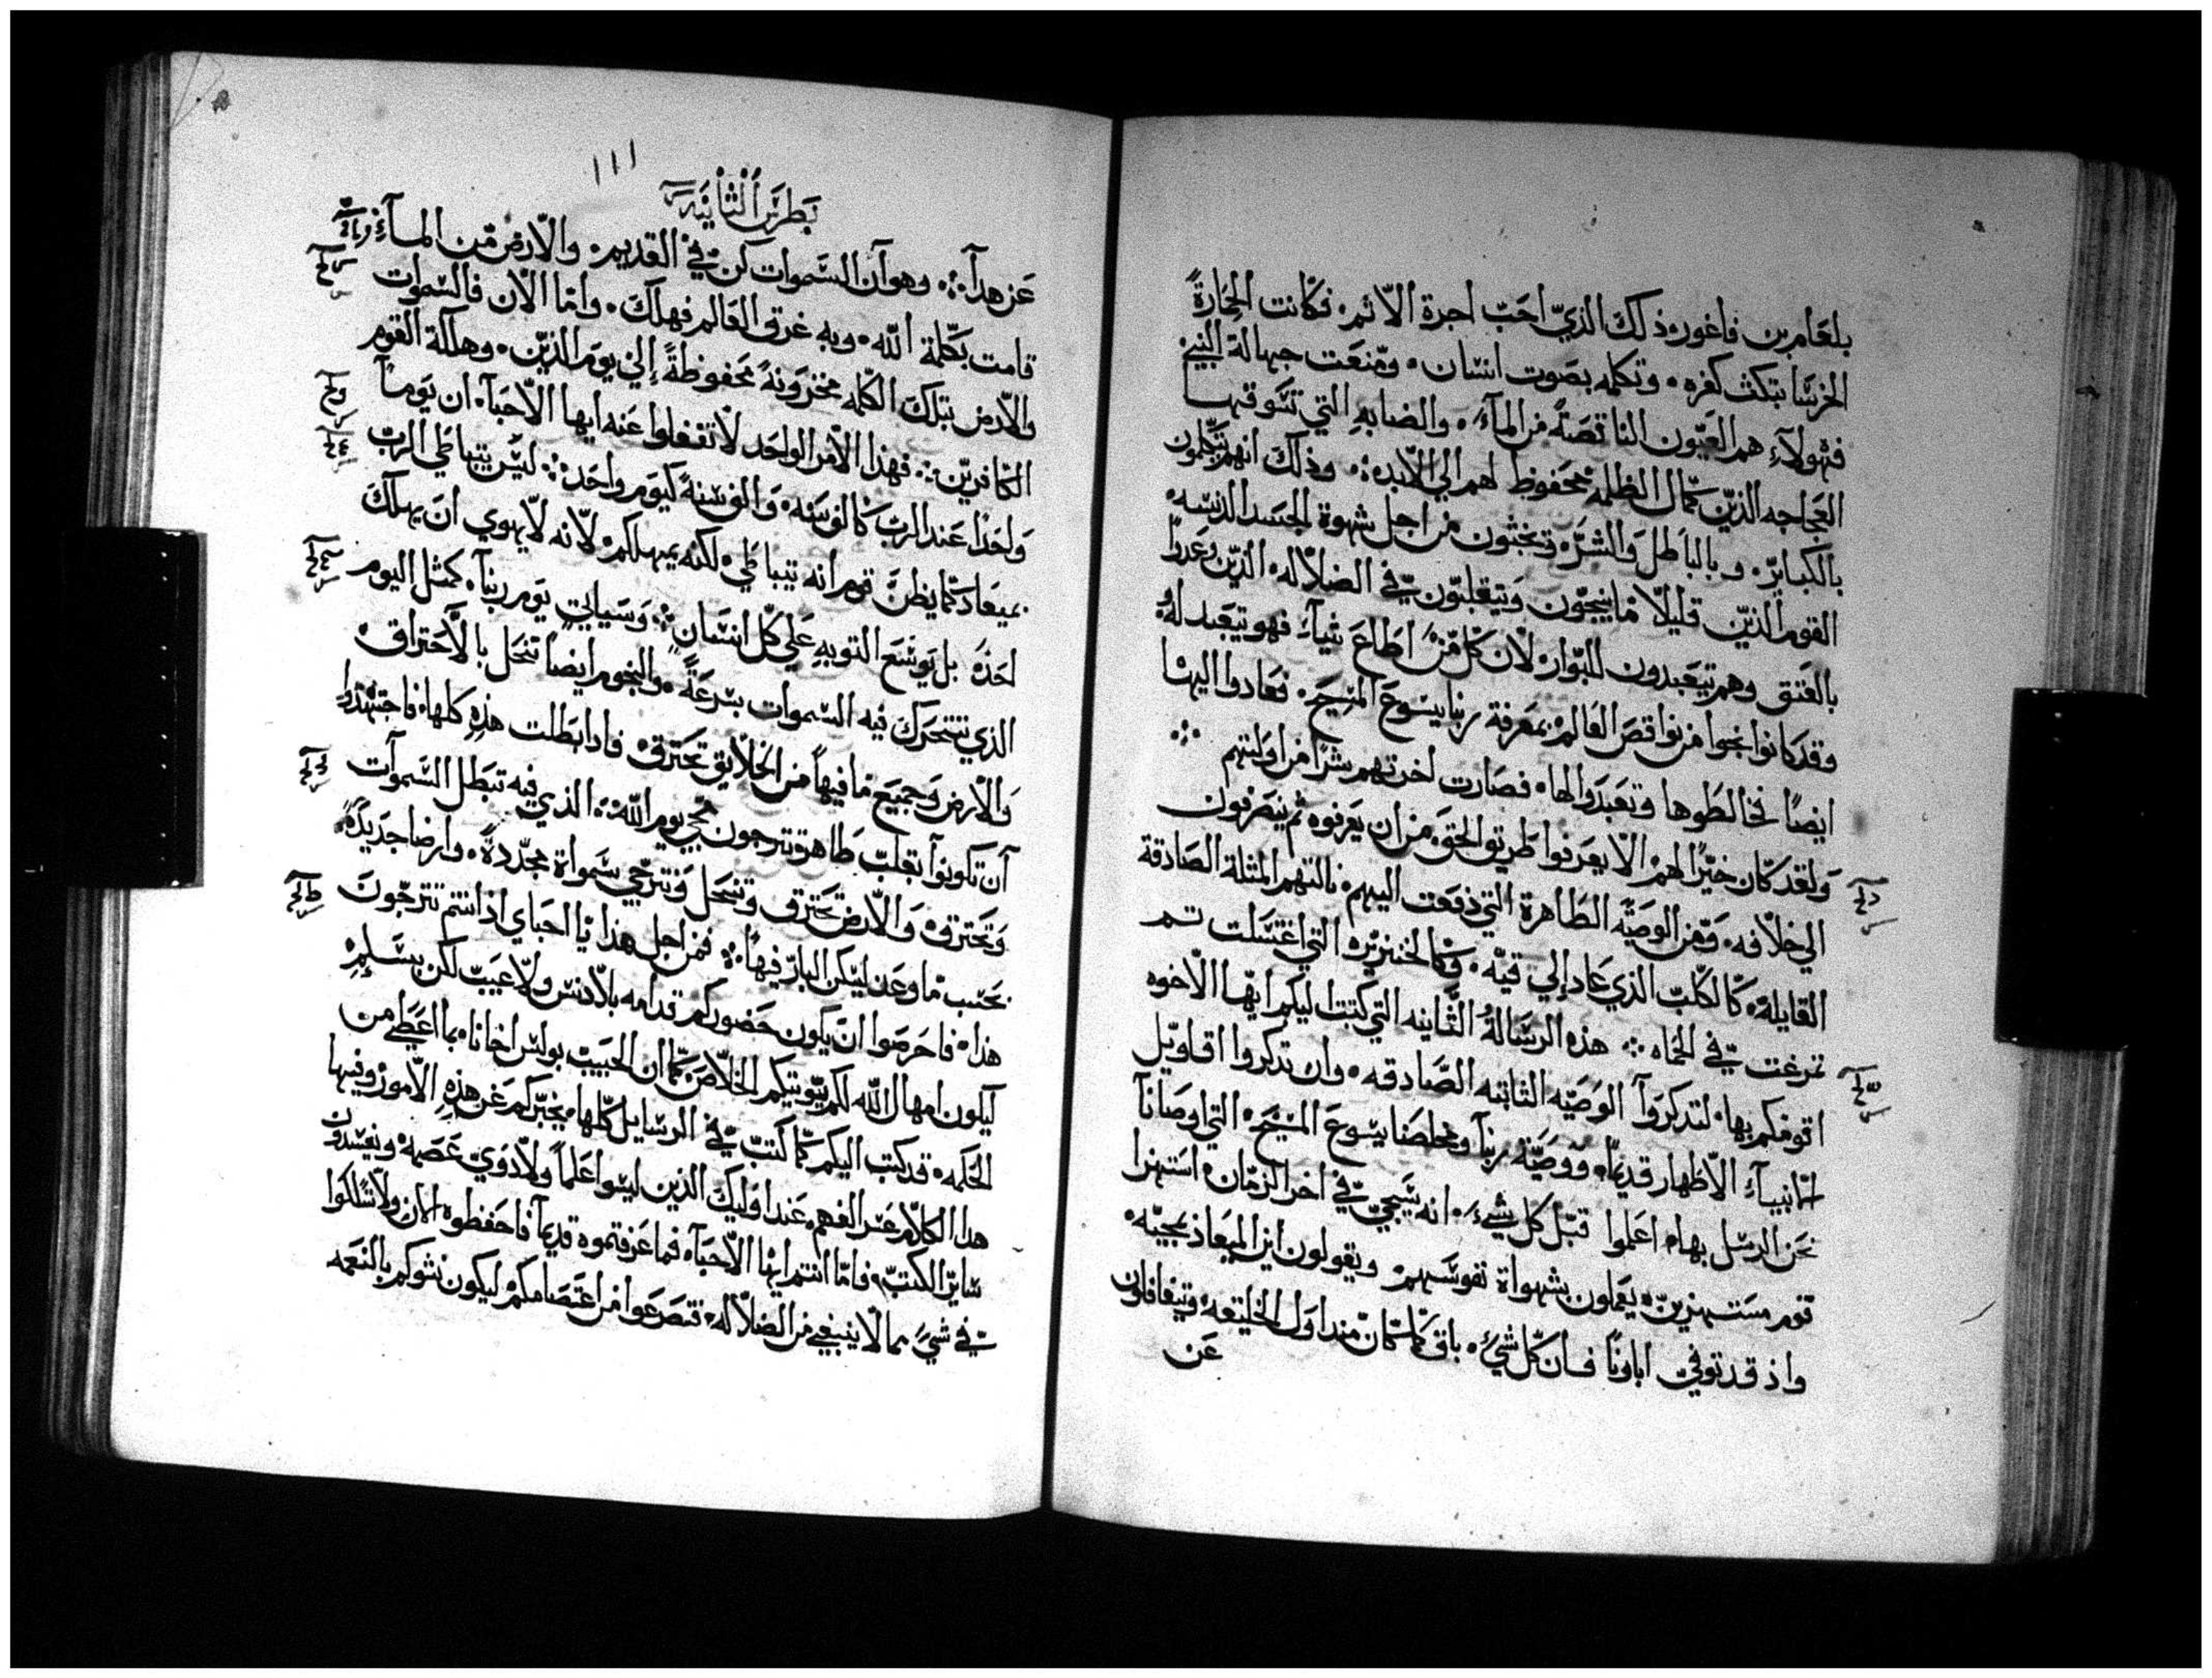 بلعام بن فاغور ذلك الذي احب اجرة الاثم فكانت الحمارة
الخرسا تبكت كفره وتكلمه بصوت انسان ومنعت جهالة النبي
فهولاء هم العيون الناقصة من المآء والضبابه التي تسوقها
العجاجه الذين كمال الظلمه محفوظ لهم الي الابد وذلك انهم يتكلمون
بالكباير وبالباطل والشر ويخبثون من اجل شهوة الجسد الدنسه
القوم الذين قليلا ما ينجون ويتقلبون في الضلاله الذين وعدوا
بالعتق وهم يتعبدون للبوار لان كل من اطاع شيآء فهو يتعبد له
وقد كانوا نجوا من نواقص العالم بمعرفة ربنا يسوع المسيح فعادوا اليها
ايضا فخالطوها وتعبدوا لها فصارت اخرتهم شرا من اولتهم
ولقد كان خيرا لهم الا يعرفوا طريق الحق من ان يعرفوه ثم ينصرفون
الي خلافه ومن الوصيه الطاهرة التي دفعت اليهم فالتهم المثلة الصادقة
القايلة كالكلب الذي عاد إلي قيه وكالخنزيره التي اغتسلت تم
تمرغت في الحماه هذه الرسالة الثانيه التي كتبت اليكم ايها الاخوه
اقومكم بها لتدكروآ الوصيه الثابته الصادقه وان تدكروا اقاويل
الانبيآء الاظهار قديما ووصية ربنآ ومخلصنا يسوع المسيح التي اوصانا
نحن الرسل بها اعلموا قبل كل شيء انه سيجي في اخر الزمان استهزا
قوم مستهزين يعملون بشهواة نفوسهم ويقولون اين الميعاد بمجيه
واذ قد توفي اباونا فان كل شيء باق كما كان مند اول الخليقه ويتغافلون
عن
١١١
بطرس الثانيه
عن هدآ وهو آن السموات كن في القديم والارض من المآء وبالمآء
قامت بكلمة الله وبه غرق العالم فهلك واما الان فالسموات
والارض بتلك الكلمه مخزونة محفوظة إلي يوم الدين وهلاكة القوم
الكافرين فهدا الامر الواحد لا تغفلوا عنه ايها الاحبآء ان يوما
واحدا عند الرب كالف سنه والف سنة كيوم واحد ليس يتباطي الرب
بميعاد كما يظن قوم انه يتباطي لكنه يمهلكم لانه لا يهوي ان يهلك
احد بل يوسع التوبه علي كل انسان وسياتي يوم ربنآ كمثل اليوم
الذي تتحرك فيه السموات بسرعة والنجوم ايضا تنحل بالاحتراق
والارض وجميع ما فيها من الخلايق تحترق فادا بطلت هذه كلها فاجتهدوا
آن تكونوآ بقلب طاهر وترجون مجي يوم الله الذي فيه تبطل السموآت
وتحترق والارض تحترق وتنحل ونترجي سمواة مجددة وارضا جديدة
بحسب ما وعد ليسكن البار فيها فمن اجل هذا يا احباي اذ انتم تترجون
هذا فاحرصوا ان يكون حضوركم قدامه بلا دنس ولا عيب لكن بسلم
ليكون امهال الله لكم الخلاص كما ان الحبيب بولس اخانا بما اعطي من
الحكمه قد كتب اليكم كما كتب في الرسايل كلها يخبركم عن هذه الامور وفيها
هدا الكلام عسر الفهم عند اوليك الذين ليسوا علما ولا دوي عصمه ويفسدون
ساير الكتب فاما انتم ايها الاحبآء فما عرفتموه قديما فاحفظوه الان ولا تسلكوا
في شي مما لا ينبغي من الضلاله فتصرعوا من اعتصامكم ليكون نشوكم بالنعمه